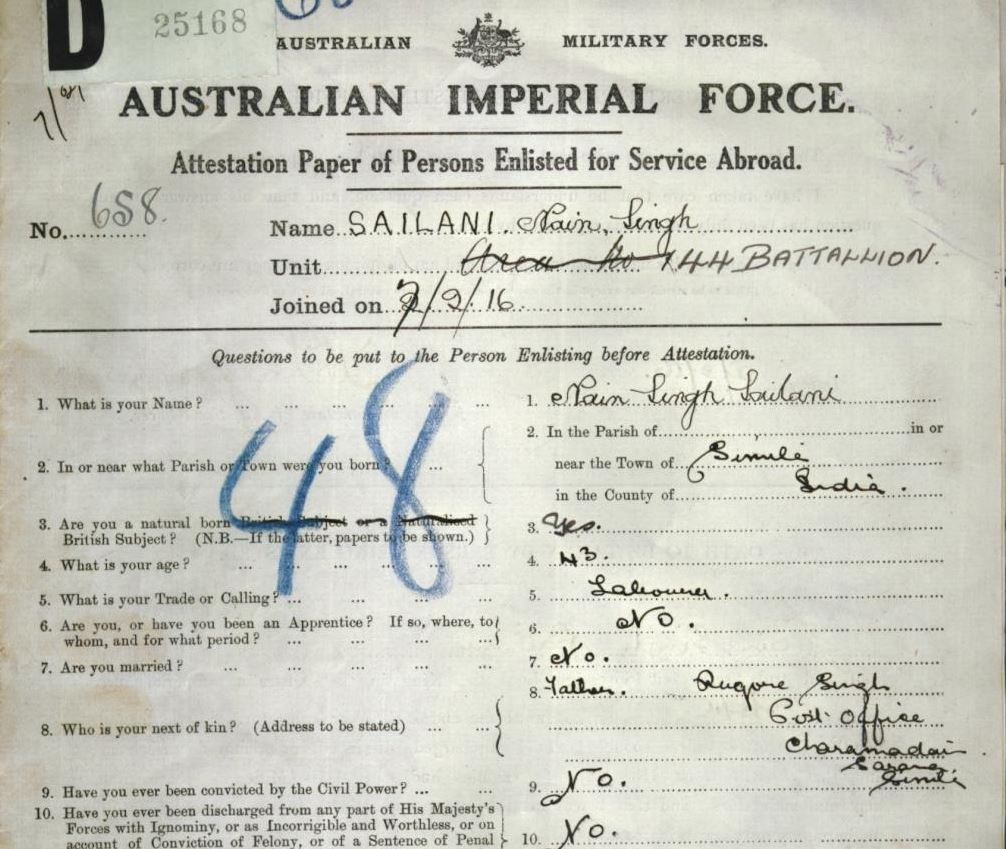 D 25168
AUSTRALIAN MILITARY FORCES.
AUSTRALIAN IMPERIAL FORCE.
Attestation Paper of Persons Enlisted for Service Abroad.
No. 658. Name SAILANI. Nain, Singh
Unit Area No 44 BATTALLION.
Joined on /9/16
Questions to be put to the Person Enlisting before Attestation.
48
1. What is your Name? ... 1. Nain Singh Sailani
2. In or near what Parish or Town were you born? ... 2. In the Parish of in or
near the Town of Simila
in the County of India.
3. Are you a natural born British Subject or a Naturalised 3. Yes.
British Subject? (N.B.—If the latter, papers to be shown.)
4. What is your age? ... 4. 43.
5. What is your Trade or Calling? ... 5. Labourer.
6. Are you, or have you been an Apprentice? If so, where, to 6. No.
whom, and for what period? ...
7. Are you married? ... 7. No.
8. Who is your next of kin? (Address to be stated) ... 8. Father. Singh
Post Office
9. Have you ever been convicted by the Civil Power? ... 9. No.
10. Have you ever been discharged from any part of His Majesty's 10. No.
Forces with Ignominy, or as Incorrigible and Worthless, or on
account of Conviction of Felony, or of a Sentence of Penal